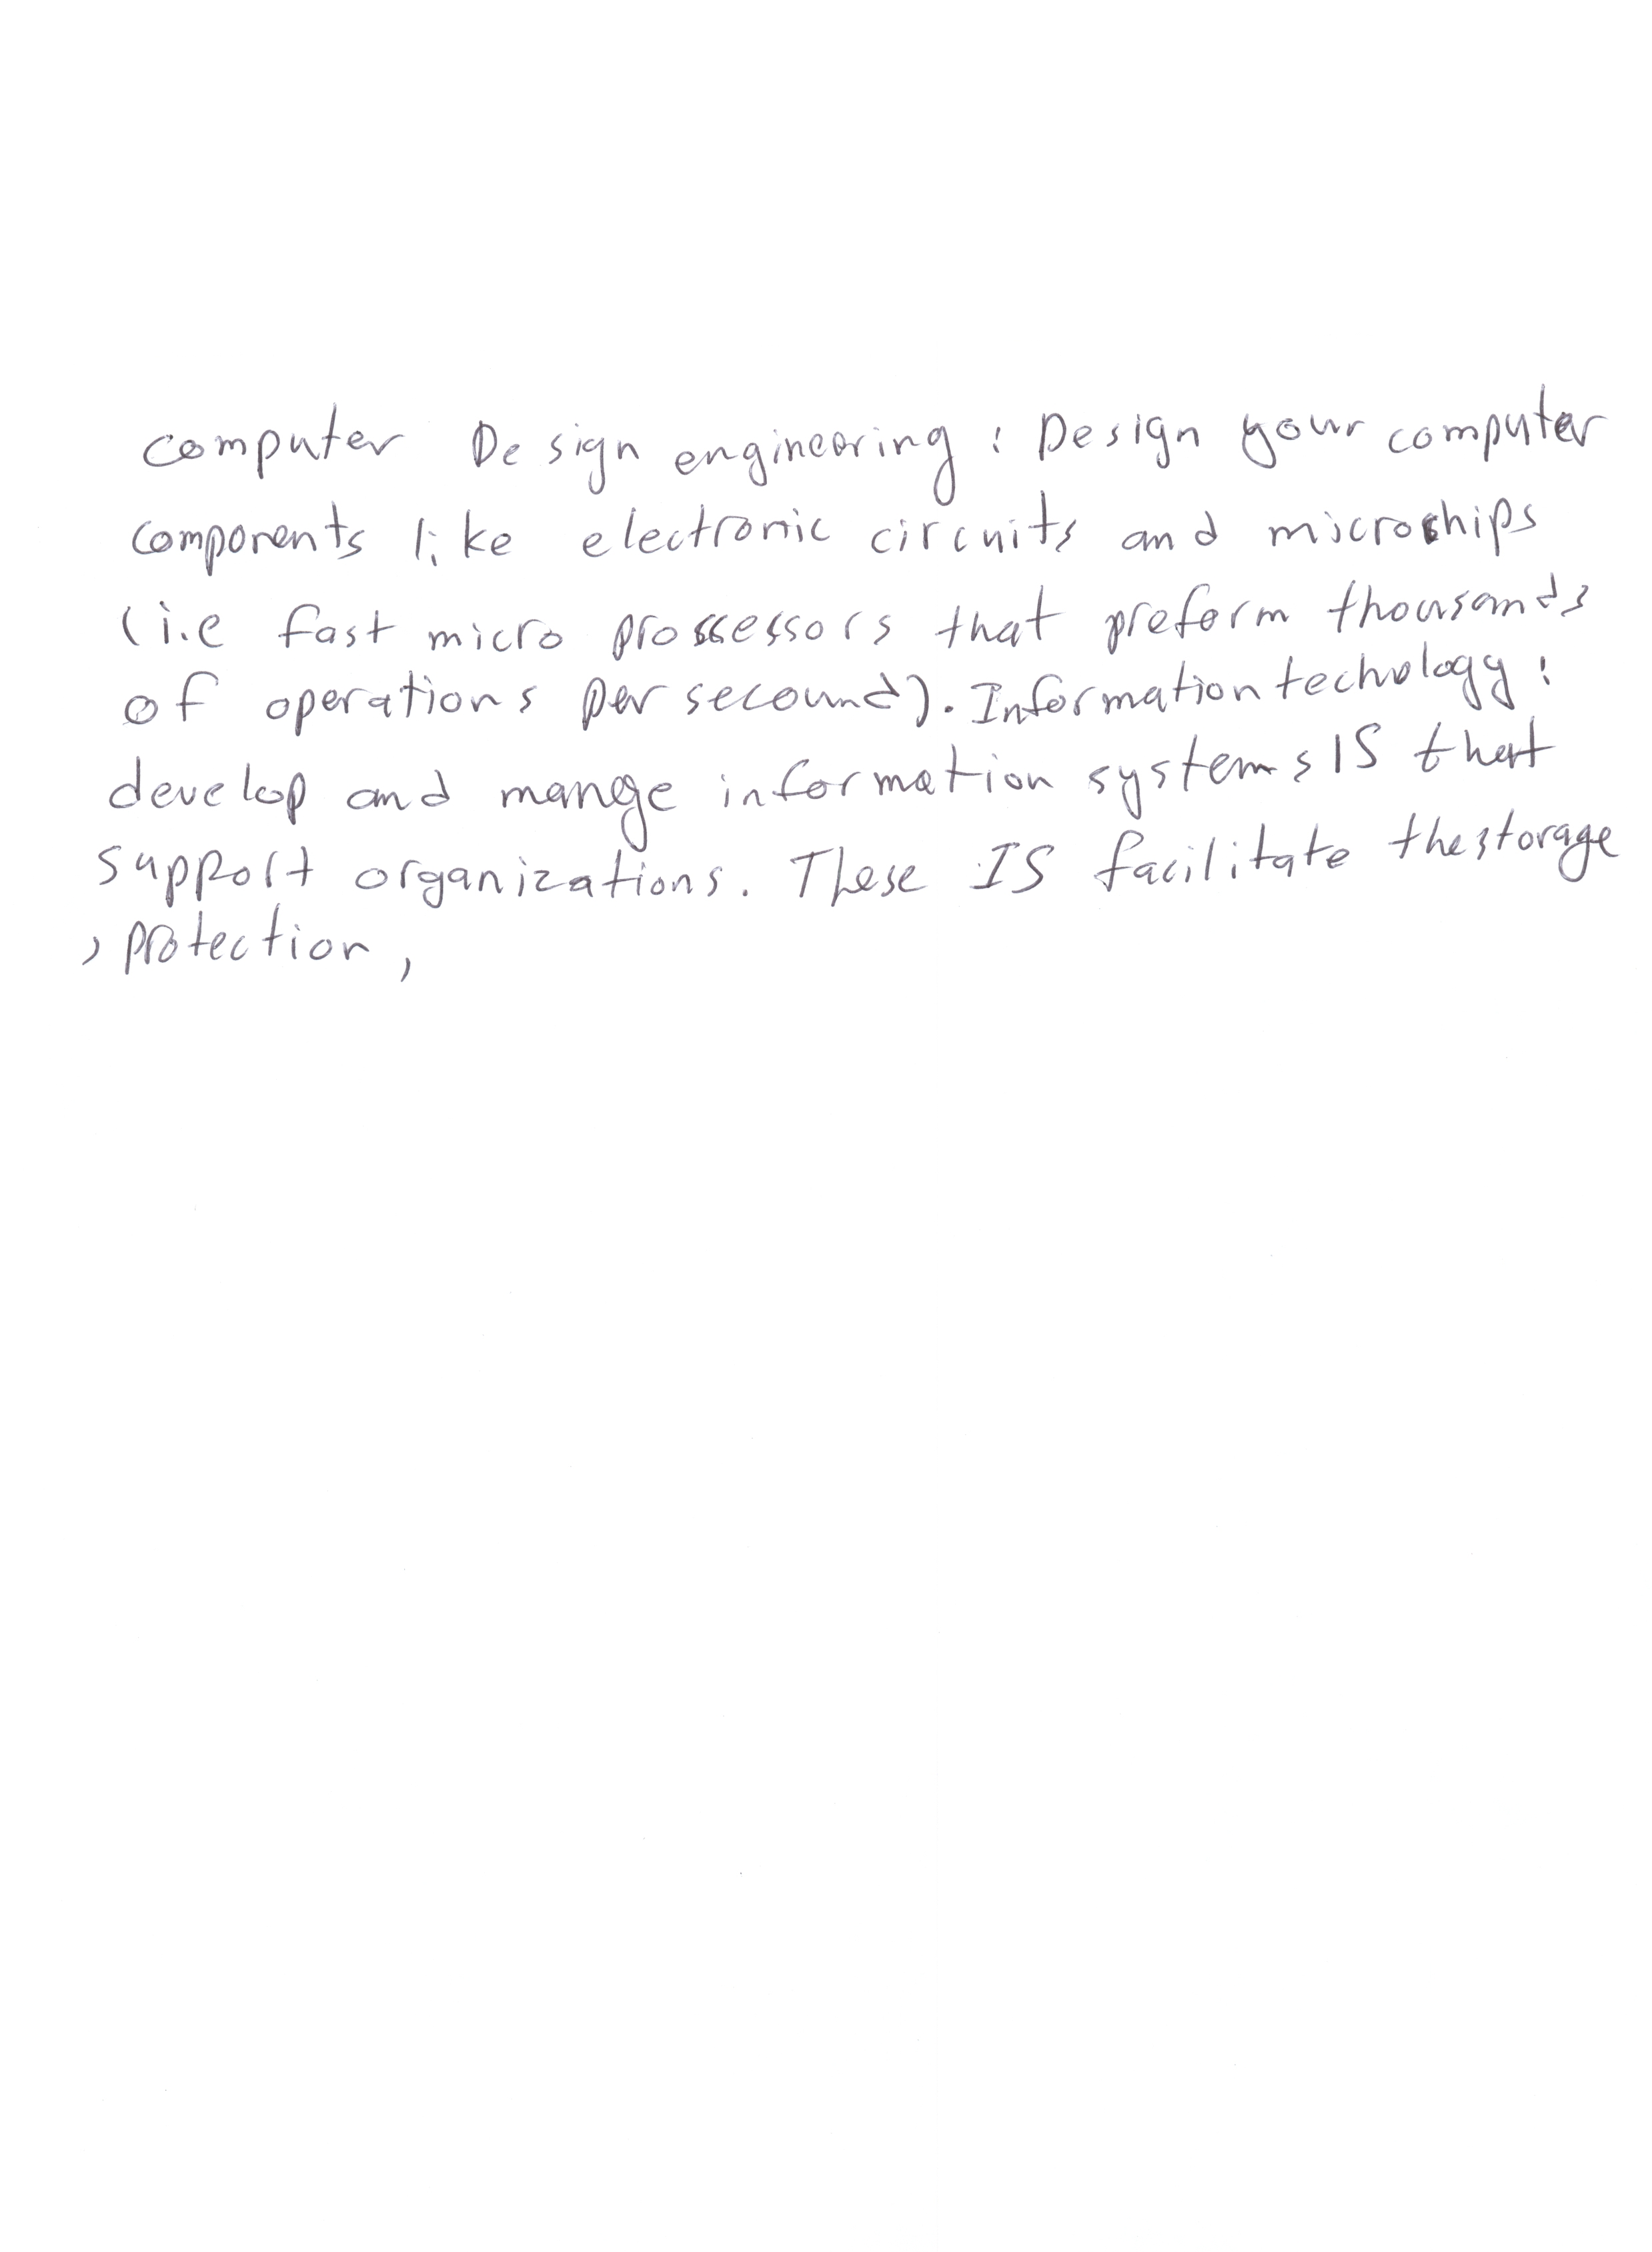 computer Design engineering : Design your computer
components like electronic circuits and microchips
(i.e fast micro prossessors that preform thousands
of operations per secound). Information technology :
develop and mange information systems IS that
support organizations. These IS facilitate the storage
, protection ,